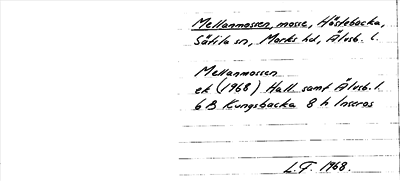 Mellanmossen, mosse, Hästebacka,
Sätila sn, Marks hd, Älvsb. l.
Mellanmossen
ek (1968) Hall. samt Älvsb. l.
6 B Kungsbacka 8 h Inseros
L. F. 1968.